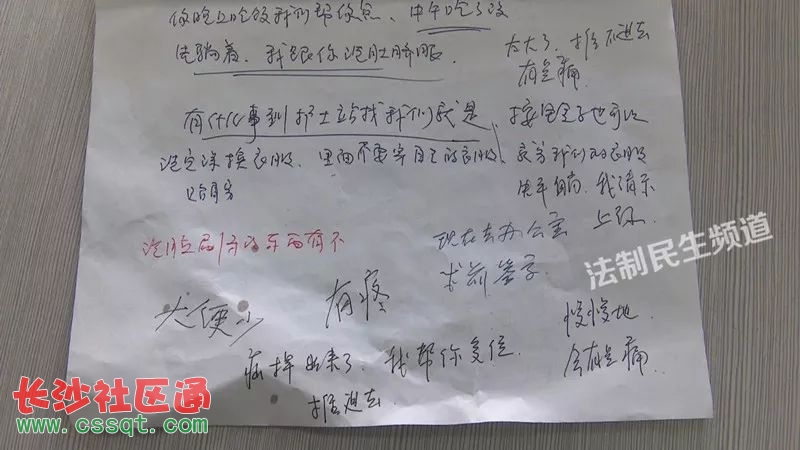 你晚上吃饭我们帮你点. 中午吃了没
先躺着. 我跟你洗肚脐眼.
有什么事到护士站找我们就是
洗完澡换衣服. 里面不要穿自己的衣服
太大了. 推不进去
有点痛
也可以
我们的衣服
先平躺. 我请示
上级.
东西有不
现在去办公室
术前签字
大便少
有疼
掉出来了. 我帮你复位.
推进去.
慢慢地
会有点痛.
法制民生频道
长沙社区通
www.cssqt.com